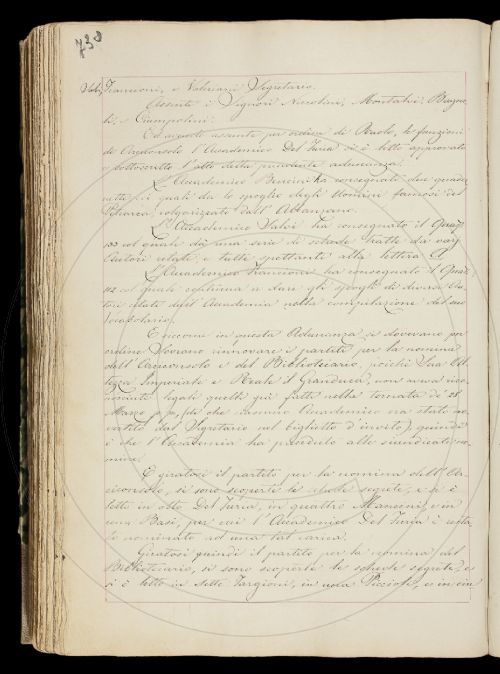 738
Francioni, e Valeriani Segretario.
Assenti i Signori Niccolini, Montalvi, Bagno-
li, e Ciampolini.
Ed avendo assunte per ordine di Ruolo, le funzioni
di Arciconsolo l'Accademico Del Furia si è letto approvato
e sottoscritto l'atto della precedente adunanza.
L'Accademico Bencini ha consegnati due quader-
netti, ci quali dà lo spoglio degli Uomini famosi del
Petrarca, volgarizzato dall' Albanzano.
L'Accademico Salvi ha consegnato il Quad.
col quale dà una serie di schede tratte da varj
Autori citati, e tutte spettanti alla lettera A
L'Accademico Francioni ha consegnato il Quad.
col quale continua a dare gli spogli di diversi Au-
tori citati dall' Accademia nella compilazione del suo
Vocabolario.
E siccome in questa Adunanza si dovevano per
ordine Sovrano rinnovare i partiti per la nomina
dell' Arciconsolo e del Bibliotecario, poichè Sua Al-
tezza Imperiale e Reale il Granduca, non aveva rico-
nosciuti legali quelli già fatti nella tornata de' 28
Marzo p.p., che nessuno Accademico era stato av-
vertito dal Segretario nel biglietto d'invito), quindi
è che l'Accademia ha proceduto alle suindicate no-
mine.
E giratosi il partito per la nomina dell' Ar-
ciconsolo, si sono scoperte le schede segrete, e si è
letto in otto Del Furia, in quattro Mancini, e in
una Basi, per cui l'Accademico Del Furia è resta-
to nominato ad una tal carica.
Giratosi quindi il partito per la nomina del
Bibliotecario, si sono scoperte le schede segrete, e
si è letto in sette Targioni, in una Picciole, e in cin